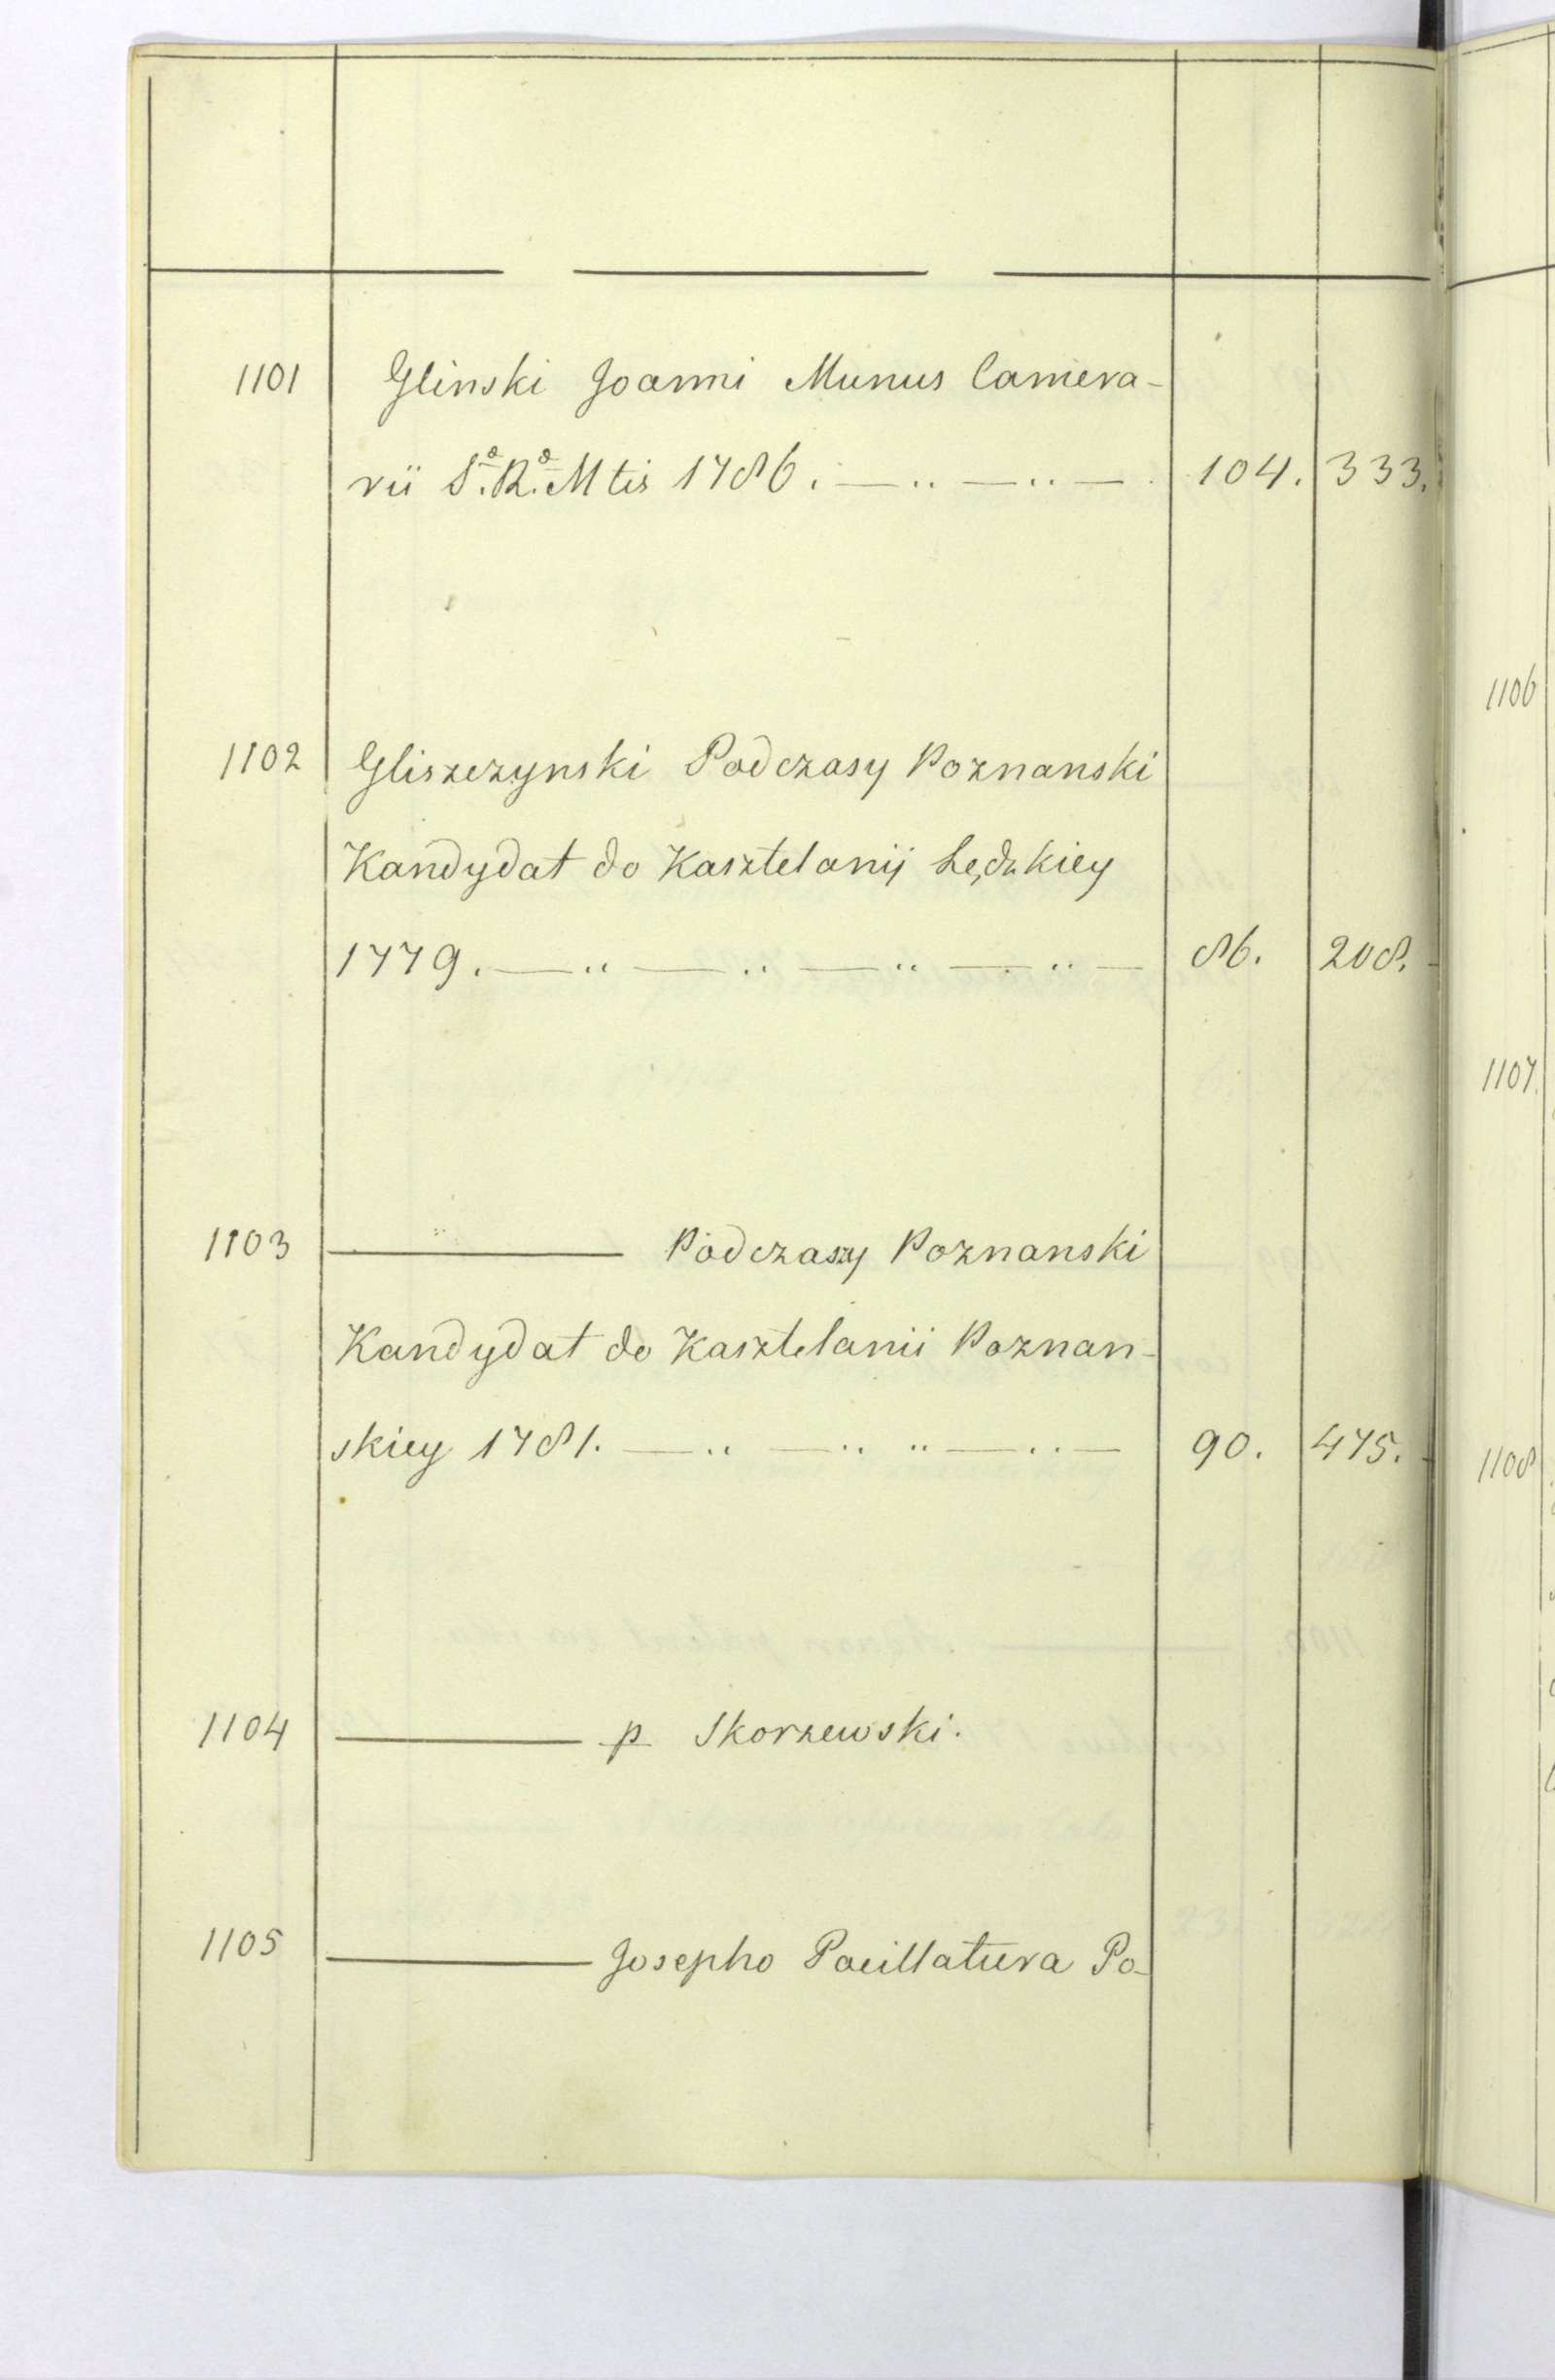 1101 Glinski Joanni Munus Camera-
rii S.ae R.ae Mtis 1786. — .. — .. — 104. 333.
1102 Gliszczynski Podczasy Poznanski
Kandydat do Kasztelanij Lędzkiey
1779. — .. — .. — .. — .. — 86. 208.
1103 ——— Podczaszy Poznanski
Kandydat do Kasztelanii Poznan-
skiey 1781. — .. — .. .. — .. — 90. 475.
1104 ——— p Skorzewski.
1105 ——— Josepho Pocillatura Po-
1106
1107.
1108